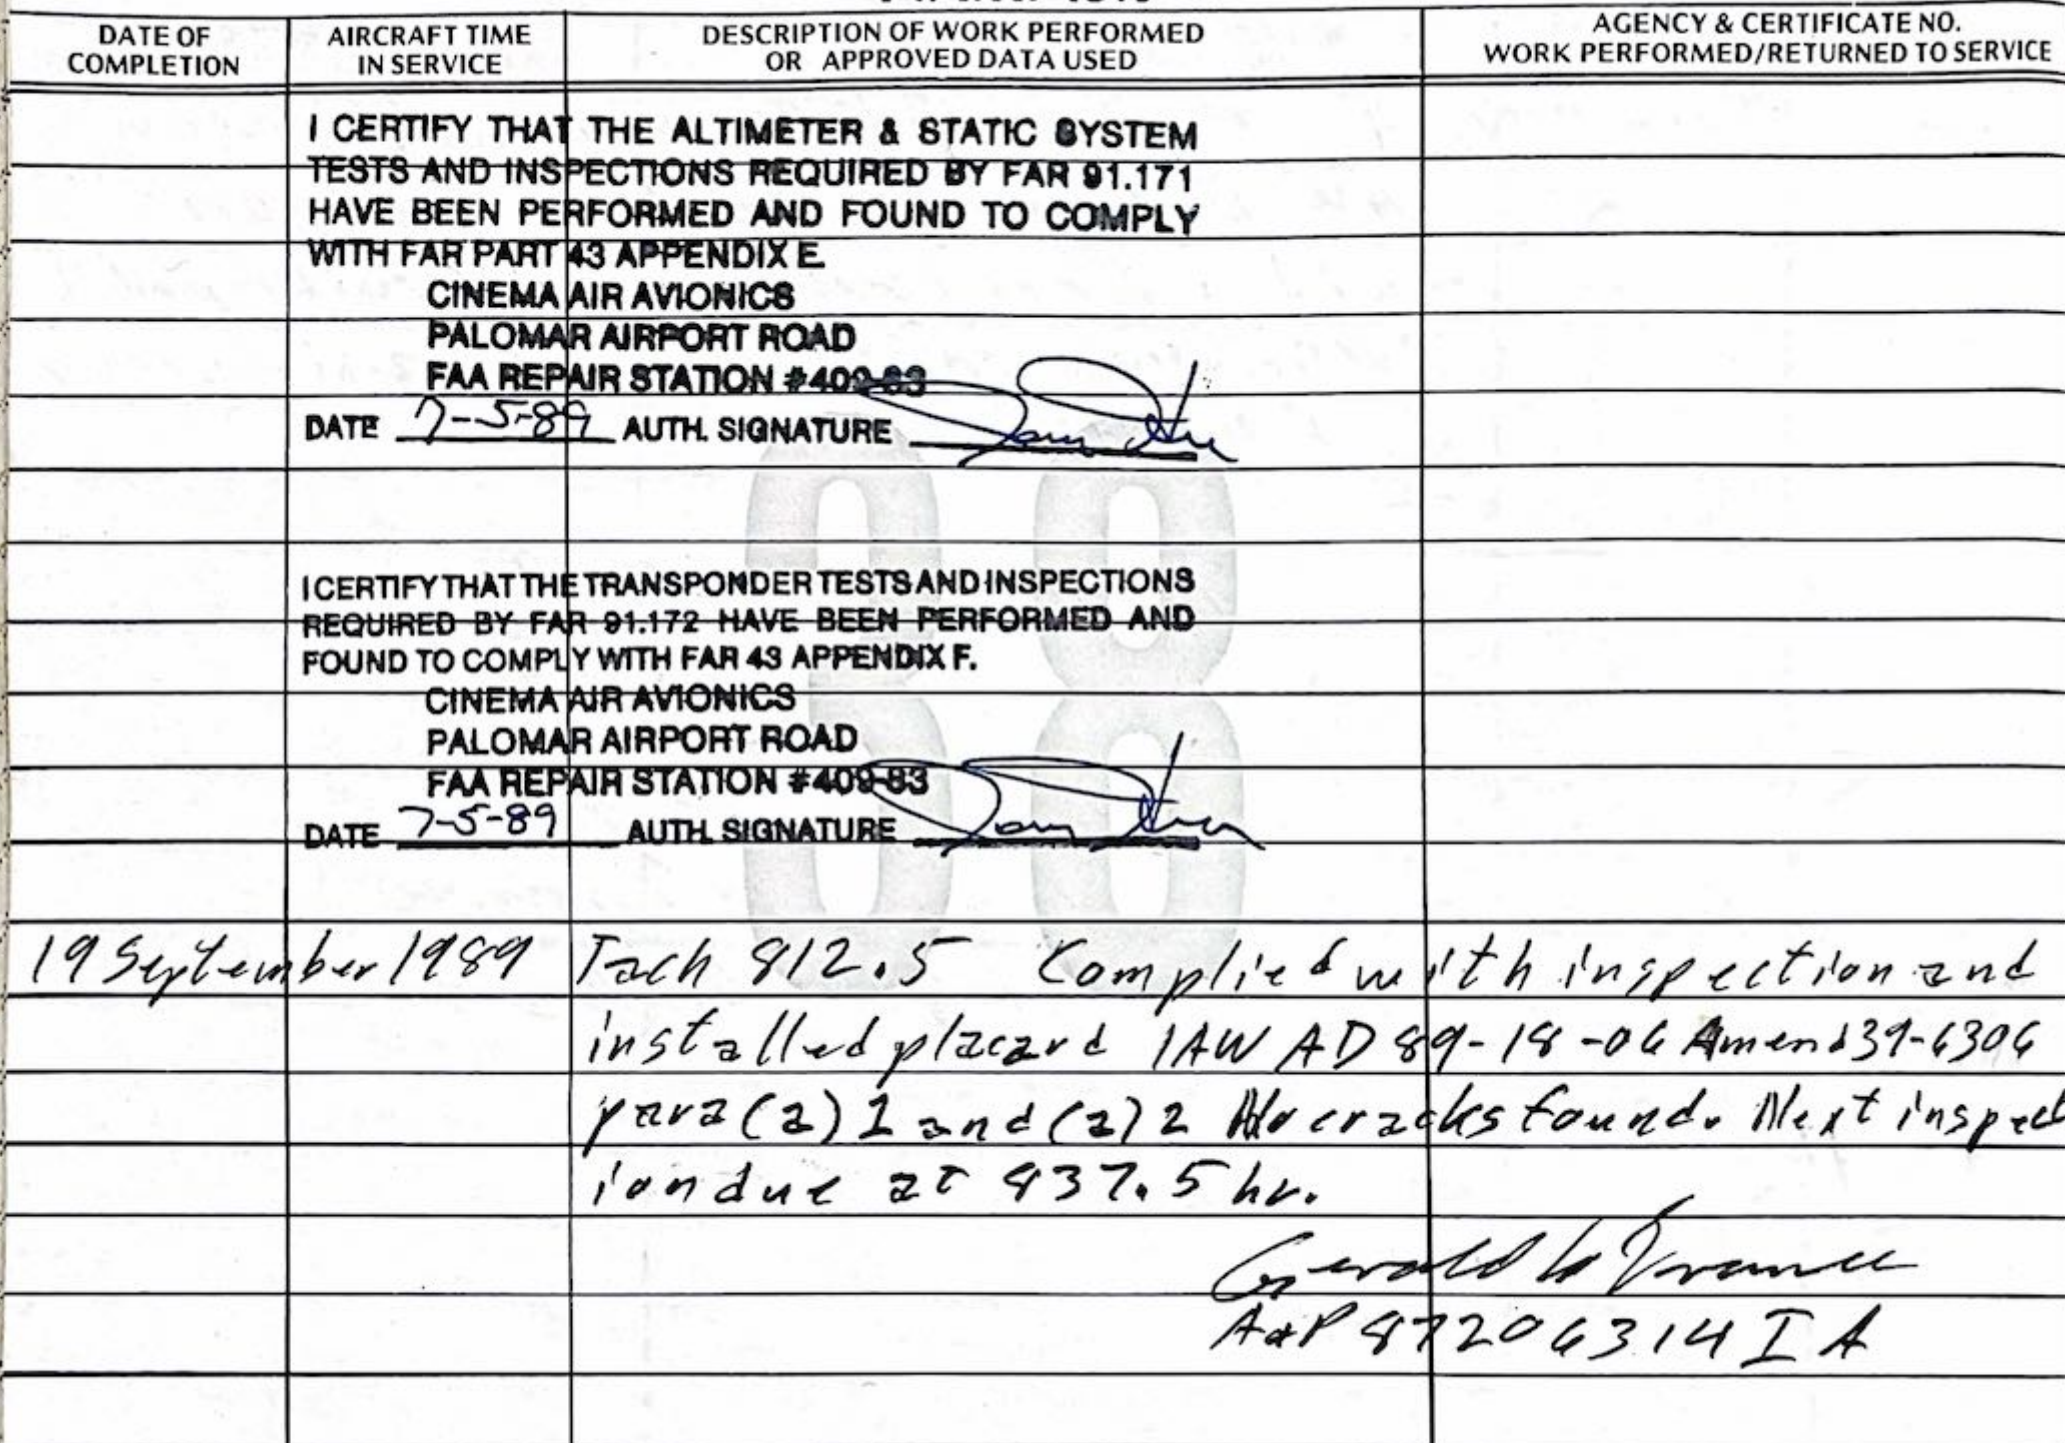 DATE OF COMPLETION
AIRCRAFT TIME IN SERVICE
DESCRIPTION OF WORK PERFORMED OR APPROVED DATA USED
AGENCY & CERTIFICATE NO. WORK PERFORMED/RETURNED TO SERVICE
I CERTIFY THAT THE ALTIMETER & STATIC SYSTEM
TESTS AND INSPECTIONS REQUIRED BY FAR 91.171
HAVE BEEN PERFORMED AND FOUND TO COMPLY
WITH FAR PART 43 APPENDIX E.
CINEMA AIR AVIONICS
PALOMAR AIRPORT ROAD
FAA REPAIR STATION #409-83
DATE 7-5-89 AUTH. SIGNATURE
I CERTIFY THAT THE TRANSPONDER TESTS AND INSPECTIONS
REQUIRED BY FAR 91.172 HAVE BEEN PERFORMED AND
FOUND TO COMPLY WITH FAR 43 APPENDIX F.
CINEMA AIR AVIONICS
PALOMAR AIRPORT ROAD
FAA REPAIR STATION #409-83
DATE 7-5-89 AUTH. SIGNATURE
19 September 1989 Tach 812.5 Complied with inspection and
installed placard IAW AD 89-18-06 Amend 39-6306
para (a) 1 and (a) 2 No cracks found. Next inspect
ion due at 837.5 hr.
Gerald
A&P 87206314 IA